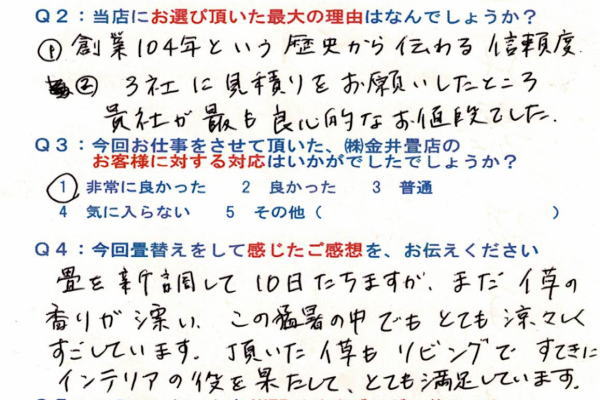 Q2：当店にお選び頂いた最大の理由はなんでしょうか？
① 創業104年という歴史から伝わる信頼度
② 3社に見積りをお願いしたところ
貴社が最も良心的なお値段でした.
Q3：今回お仕事をさせて頂いた、㈱金井畳店の
お客様に対する対応はいかがでしたでしょうか？
1 非常に良かった 2 良かった 3 普通
4 気に入らない 5 その他（ ）
Q4：今回畳替えをして感じたご感想を、お伝えください
畳を新調して10日たちますが、まだイ草の
香りが漂い、この猛暑の中でもとても涼々しく
すごしています。頂いたイ草もリビングですてきに
インテリアの役を果たして、とても満足しています.